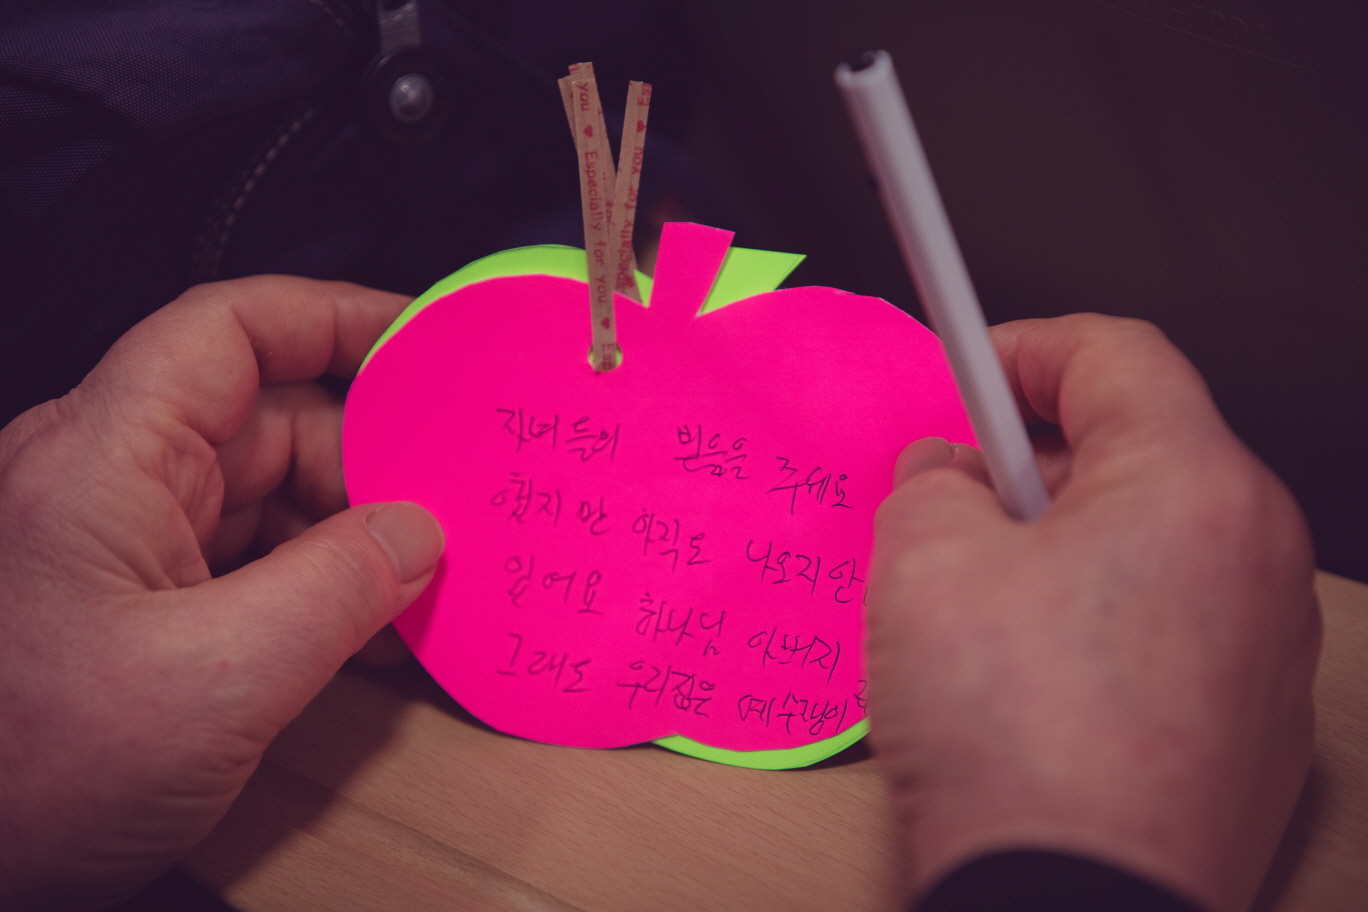 you ♥ Especially for you ♥ Esp
Especially for you ♥ Es
자녀들의 믿음을 주세요
했지만 아직도 나오지 안
있어요 하나님 아버지
그래도 우리집은 예수쟁이